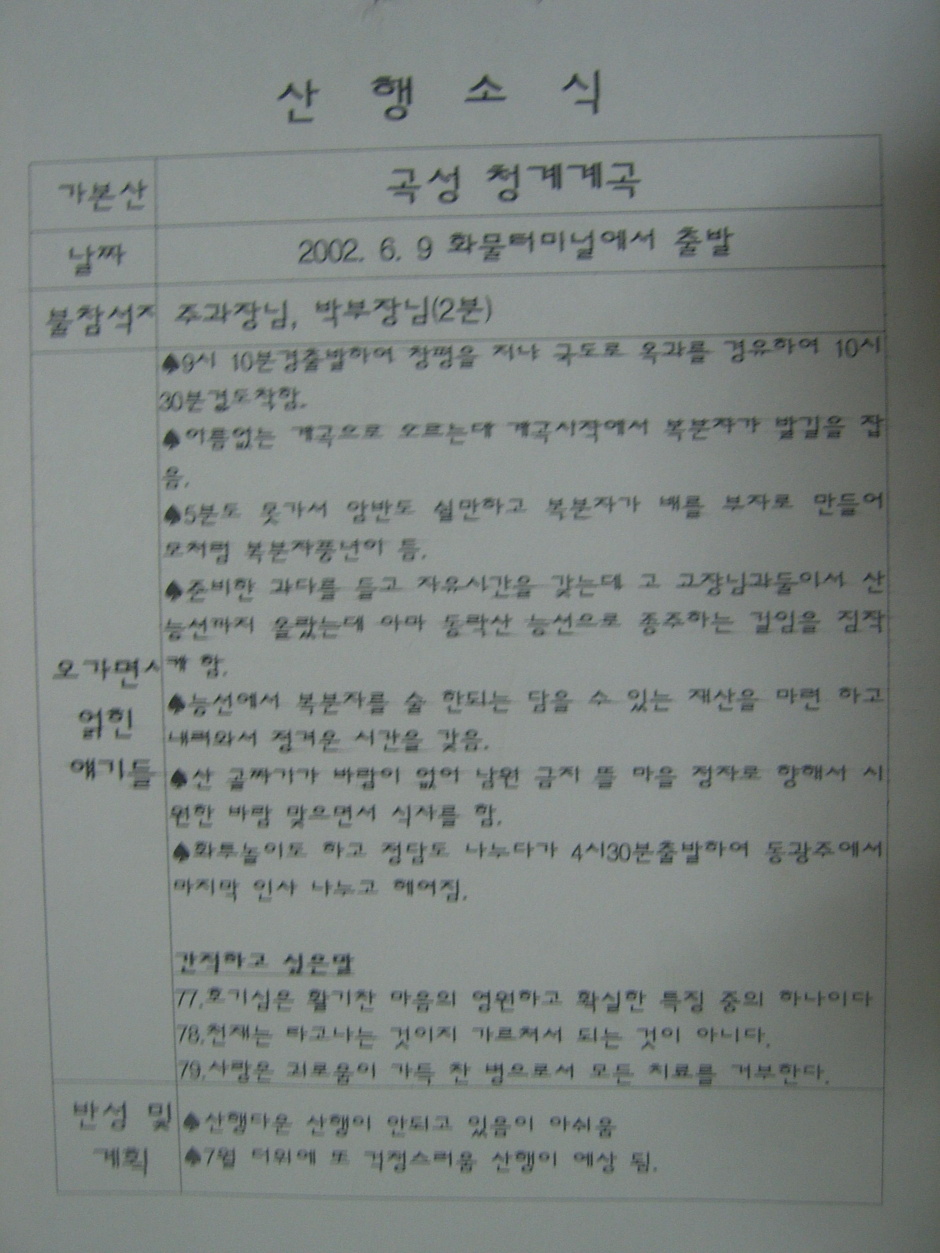 산 행 소 식
가본산 곡성 청계계곡
날짜 2002. 6. 9 화물터미널에서 출발
불참석자 주과장님, 박부장님(2분)
♠9시 10분경출발하여 창평을 지나 국도로 옥과를 경유하여 10시
30분경도착함.
♠이름없는 계곡으로 오르는데 계곡시작에서 복분자가 발길을 잡
음.
♠5분도 못가서 암반도 실만하고 복분자가 배를 부자로 만들어
모처럼 복분자풍년이 듬.
♠준비한 과다를 들고 자유시간을 갖는데 고 교장님과둘이서 산
능선까지 올랐는데 아마 동락산 능선으로 종주하는 길임을 짐작
케 함.
오가면서
얽힌
얘기들
♠능선에서 복분자를 술 한되는 담을 수 있는 재산을 마련 하고
내려와서 정겨운 시간을 갖음.
♠산 골짜기가 바람이 없어 남원 금지 뜰 마을 정자로 향해서 시
원한 바람 맞으면서 식사를 함.
♠화투놀이도 하고 정담도 나누다가 4시30분출발하여 동광주에서
마지막 인사 나누고 헤여짐.
간직하고 싶은말
77.호기심은 활기찬 마음의 영원하고 확실한 특징 중의 하나이다
78.천재는 타고나는 것이지 가르쳐서 되는 것이 아니다.
79.사랑은 괴로움이 가득 찬 병으로서 모든 치료를 거부한다.
반성 및
계획
♠산행다운 산행이 안되고 있음이 아쉬움
♠7월 더위에 또 걱정스러움 산행이 예상 됨.